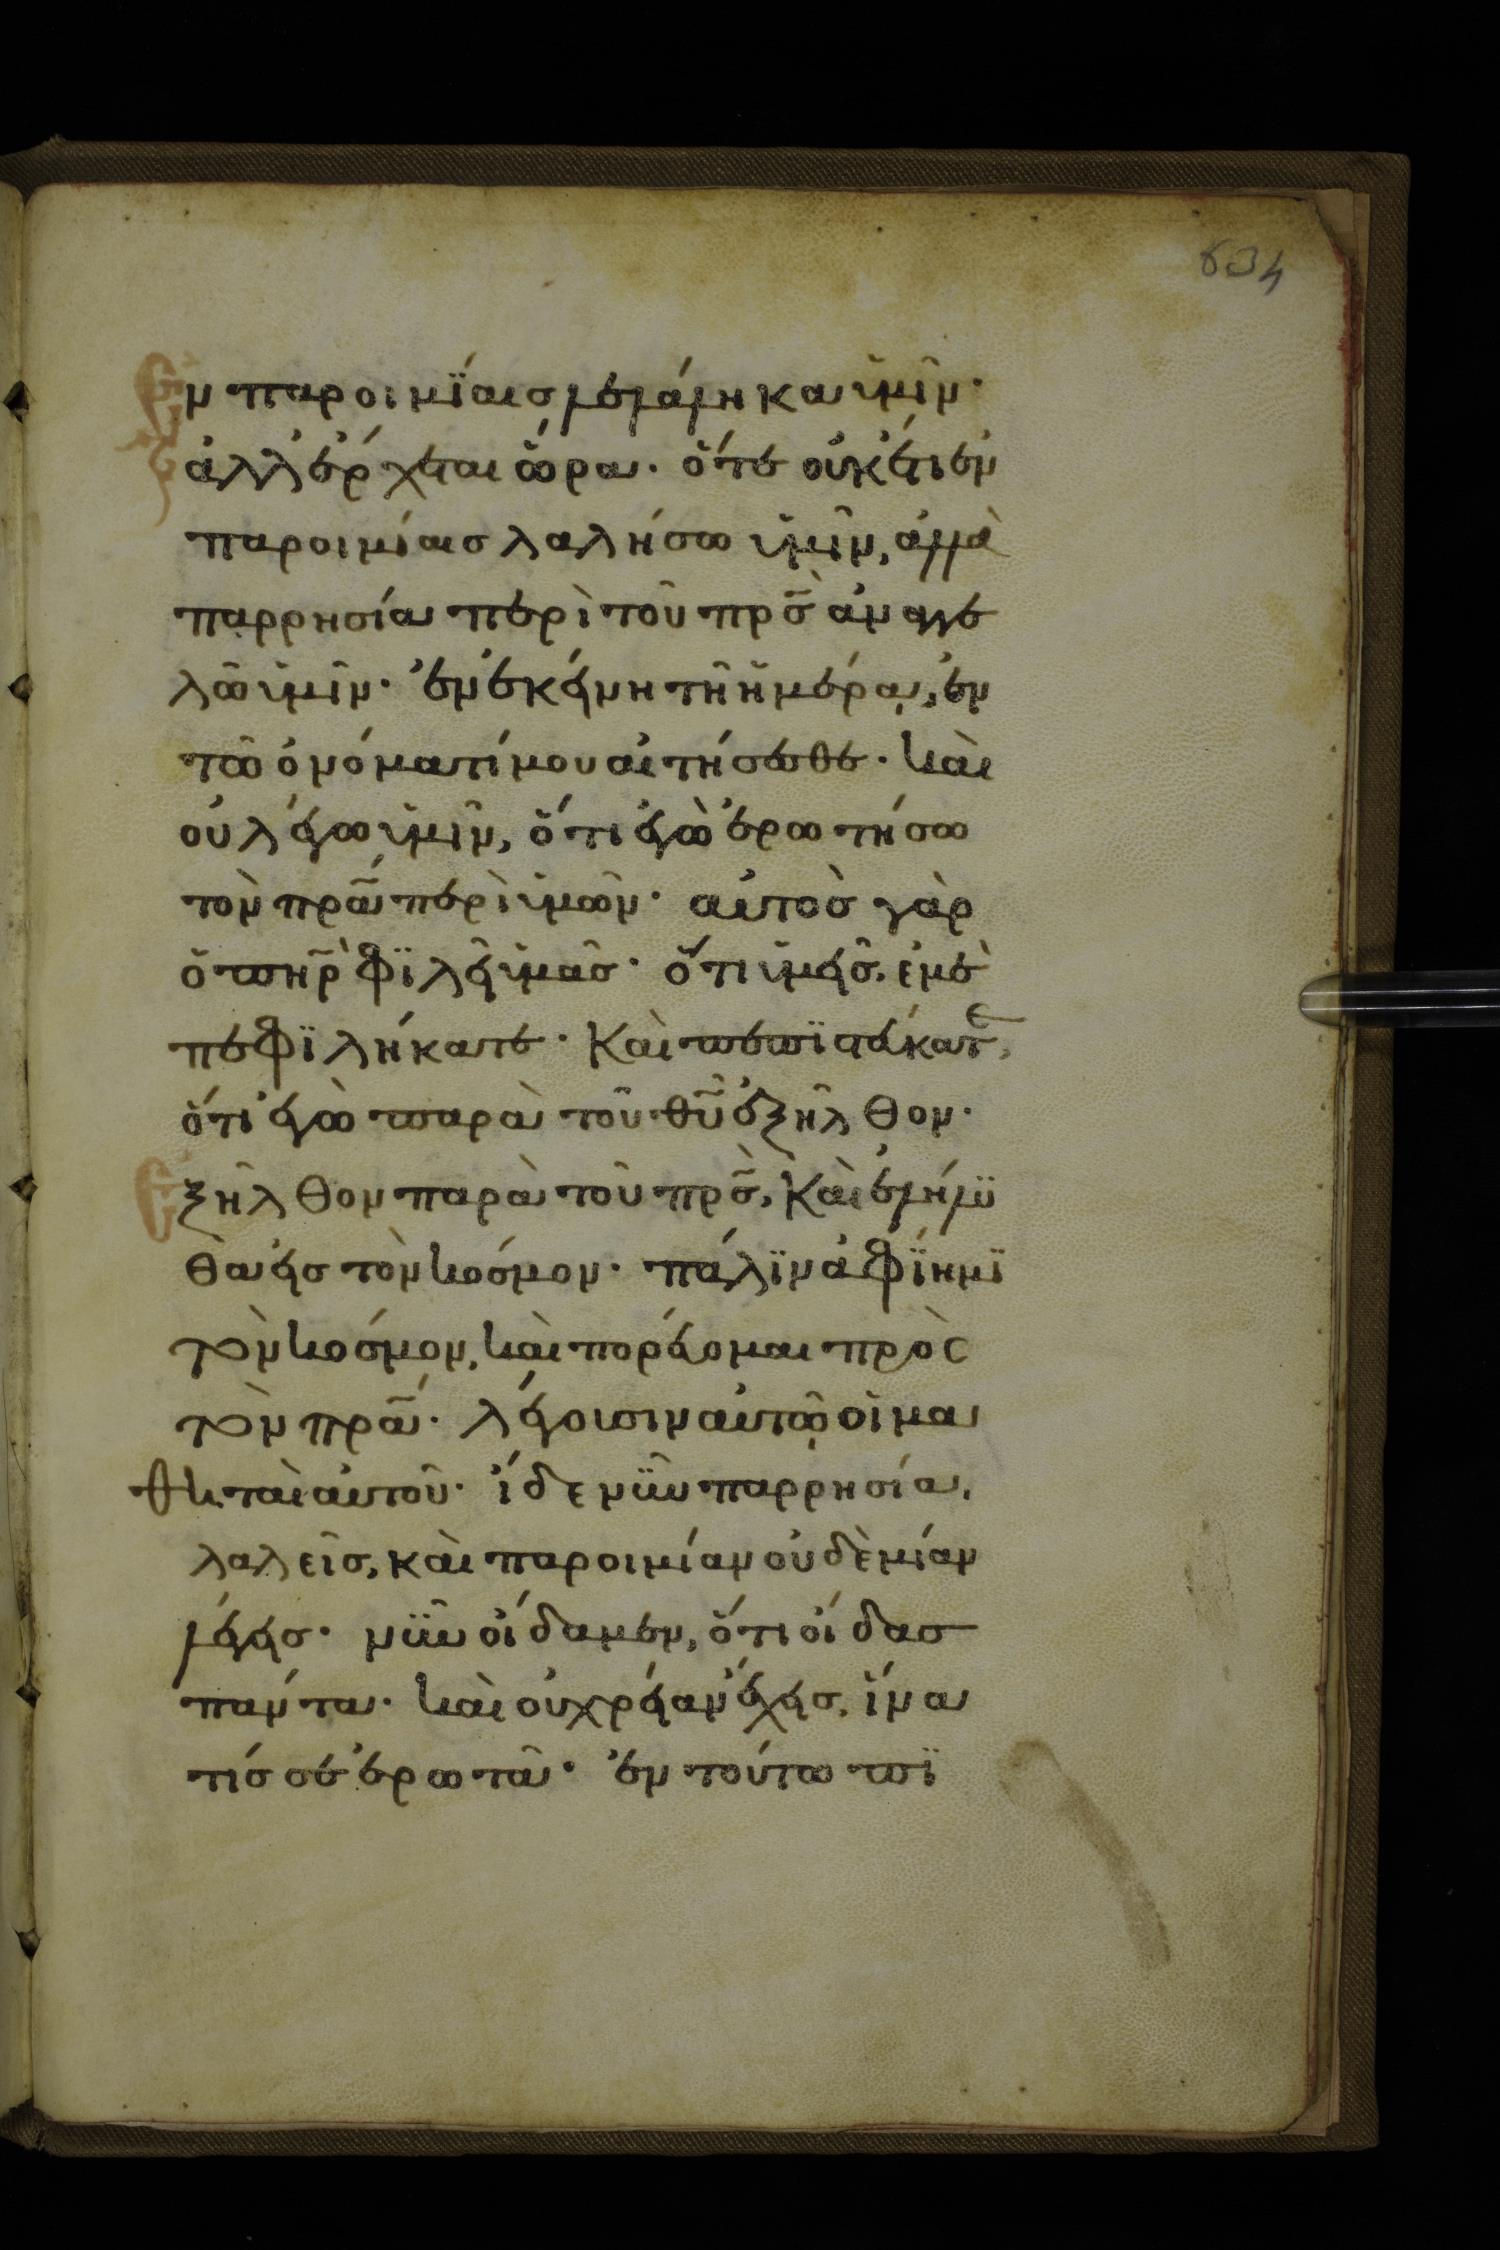 634
Ἐν παροιμΐαισ λελάληκα ὑμῖν·
ἀλλἔρχεται ὥρα· ὅτε οὐκέτι ἐν
παροιμίαισ λαλήσω ὑμῖν, ἀλλὰ
παρρησία περὶ τοῦ πρ̅σ̀ ἀναγγε
λῶ ὑμῖν· ἐν ἐκείνη τῆ ἡμέρα, ἐν
τῶ ὀνόματί μου αἰτήσεσθε· καὶ
οὐ λέγω ὑμῖν, ὅτι ἐγὼ ἐρωτήσω
τὸν πρ̅ά περὶ ὑμῶν· αὐτὸσ γὰρ
ὁ πη̅ρ̀ φϊλεῖ ὑμᾶσ· ὅτι ὑμεῖσ, ἐμὲ
πεφϊλήκατε· καὶ πεπϊστεύκατε,
ὅτι ἐγὼ παρὰ τοῦ θυ̅͂ ἐξῆλθον·
Ἐξῆλθον παρὰ τοῦ πρ̅σ̀, καὶ ἐλήλϋ
θα εἰσ τὸν κόσμον· πάλϊν ἀφΐημϊ
τὸν κόσμον, καὶ πορεύομαι πρὸς
τὸν πρ̅ά· λέγουσιν αὐτῶ οἱ μα
θηταὶ αὐτοῦ· ἴδε νῦν παρρησία,
λαλεῖσ, καὶ παροιμίαν οὐδὲμίαν
λέγεισ· νῦν οἴδαμεν, ὅτι οἶδασ
πάντα· καὶ οὐ χρείαν ἔχεισ, ἵνα
τίσ σὲ ἐρωτᾶ· ἐν τούτω πϊ